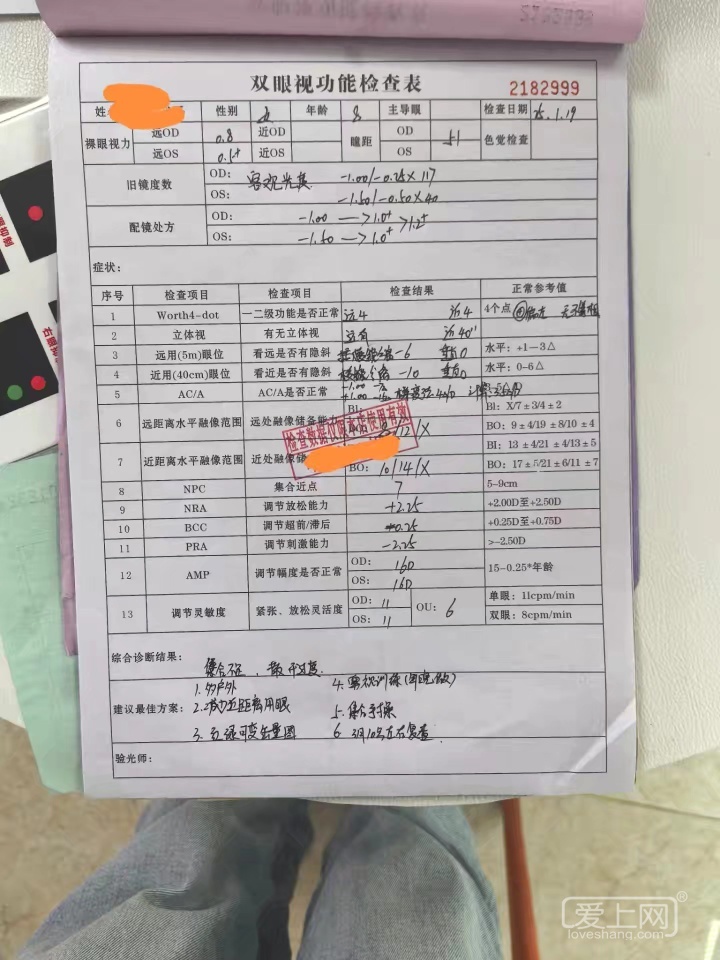 2182999
双眼视功能检查表
2182999
姓 性别 女 年龄 8 主导眼 检查日期 25.1.19
裸眼视力 远OD 0.8 近OD 瞳距 OD 51 色觉检查
远OS 近OS OS
旧镜度数 OD: 客观光度 -1.00/-0.25×117
OS: -1.50/-0.50×40
配镜处方 OD: -1.00 → 1.0⁺ >1.2⁺
OS: -1.50 → 1.0⁺
症状:
序号 检查项目 检查项目 检查结果 正常参考值
1 Worth4-dot 一二级功能是否正常 远4 近4 4个点
2 立体视 有无立体视 远有 近40"
3 远用(5m)眼位 看远是否有隐斜 -6 垂直0 水平:+1-3△
4 近用(40cm)眼位 看近是否有隐斜 -10 垂直0 水平:0-6△
5 AC/A AC/A是否正常 -1.00
+1.00
6 远距离水平融像范围 远处融像储备能力 BI: BI: X/7±3/4±2
/X BO: 9±4/19±8/10±4
检查数据仅限本店使用有效
7 近距离水平融像范围 近处融像储 BI: 13±4/21±4/13±5
BO: 10/14/X BO: 17±5/21±6/11±7
8 NPC 集合近点 7 5-9cm
9 NRA 调节放松能力 +2.25 +2.00D至+2.50D
10 BCC 调节超前/滞后 +0.25 +0.25D至+0.75D
11 PRA 调节刺激能力 -2.25 >-2.50D
12 AMP 调节幅度是否正常 OD: 16D 15-0.25*年龄
OS: 16D
13 调节灵敏度 紧张、放松灵活度 OD: 11 OU: 6 单眼:11cpm/min
OS: 11 双眼:8cpm/min
综合诊断结果: 集合不足,散开过度
建议最佳方案: 1.多户外 4.训练
2.减少近距离用眼 5.集合手操
3.红绿可变矢量图 6.3月10号左右复查
验光师:
右眼抑制
爱上网®
loveshang.com